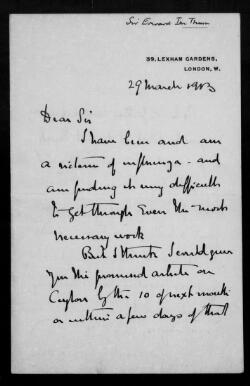 Sir Everard Im Thurn
39, LEXHAM GARDENS,
LONDON, W.
29 March 1913
Dear Sir
I have been and am
a victim of influenza - and
am finding it very difficult
to get through even the most
necessary work
But I think I could give
you the promised article on
Ceylon by the 10 of next month
or within a few days of that